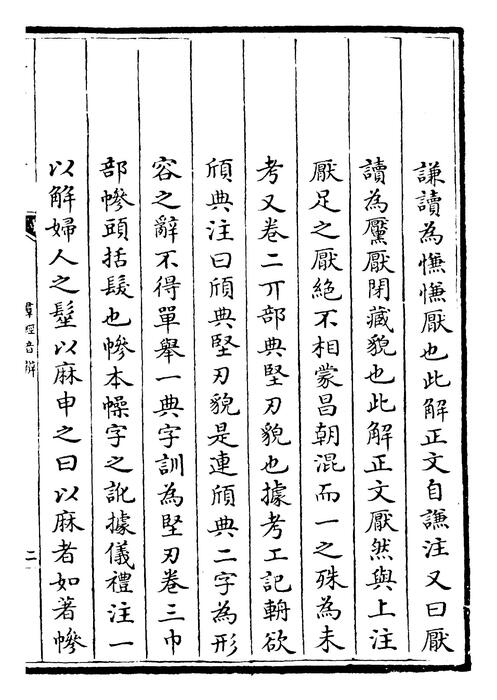 謙讀為慊慊厭也此解正文自謙注又曰厭
讀為黶厭閉藏貌也此解正文厭然與上注
厭足之厭絶不相蒙昌朝混而一之殊為未
考又卷二丌部典堅刃貌也據考工記輈欲
頎典注曰頎典堅刃貌是連頎典二字為形
容之辭不得單舉一典字訓為堅刃卷三巾
部幓頭括髮也幓本幧字之訛據儀禮注一
以解婦人之髽以麻申之曰以麻者如著幓
羣經音辨
二